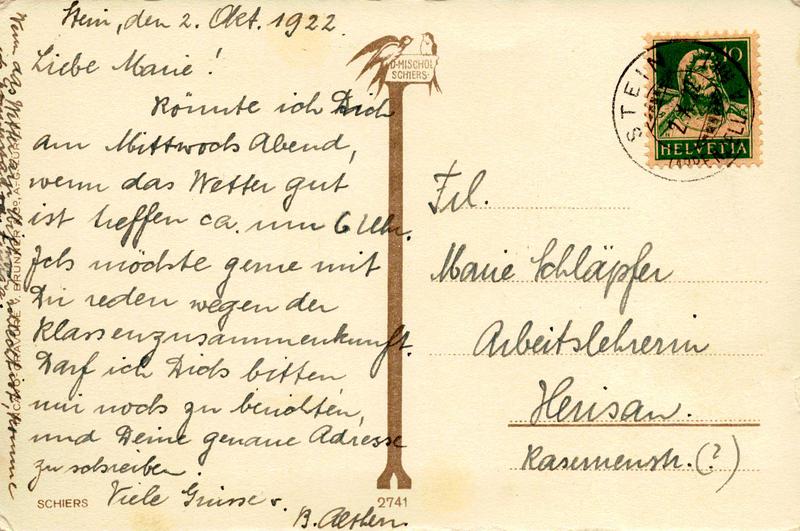 Stein, den 2. Okt. 1922.
Liebe Marie!
Könnte ich Dich
am Mittwoch Abend,
wenn das Wetter gut
ist treffen ca. um 6 Uhr.
Ich möchte gerne mit
Dir reden wegen der
Klassenzusammenkunft.
Darf ich Dich bitten
mir noch zu berichten,
und Deine genaue Adresse
zu schreiben!
Viele Grüsse v.
Wenn das Wetter
komme
D·MISCHOL
SCHIERS·
STEIN
10
HELVETIA
Frl.
Marie Schläpfer
Arbeitslehrerin
Herisau.
Kasernenstr. (?)
SCHIERS
2741